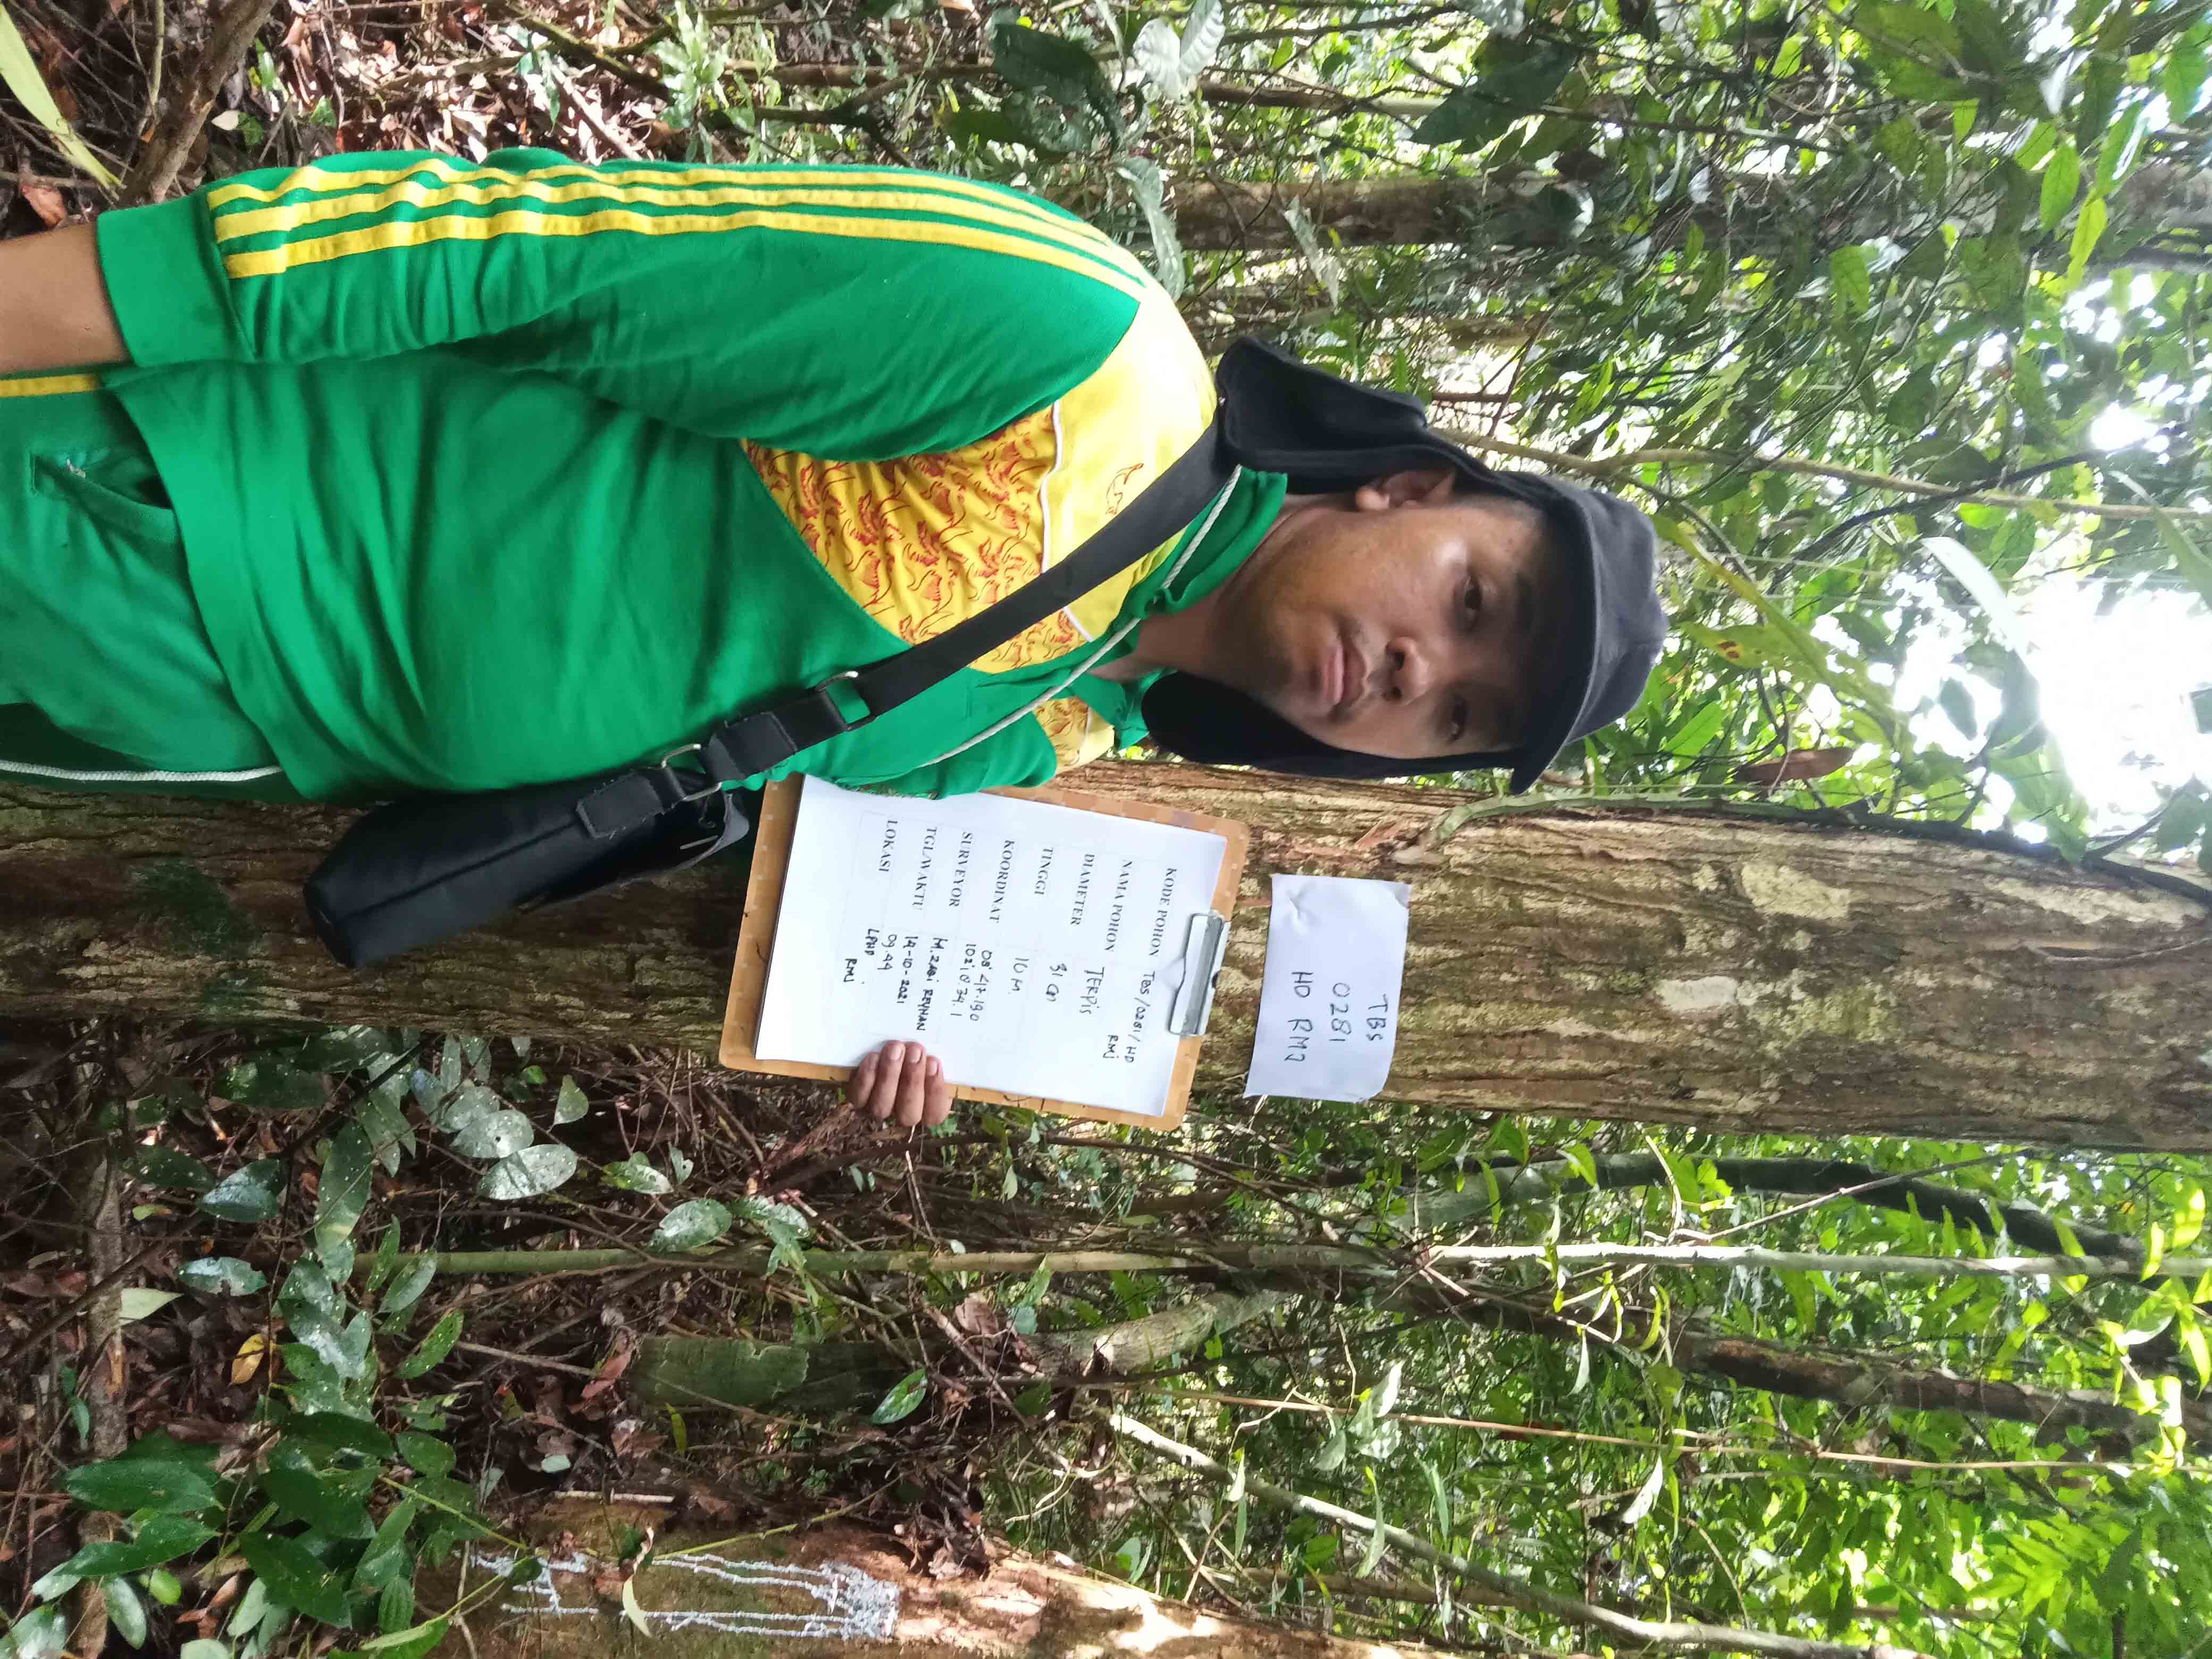 TBS
0281
HD RMJ
KODE POHON TBS/0281/HD
RMJ
NAMA POHON TERPIS
DIAMETER 31 cm
TINGGI 10 M
KOORDINAT
102
SURVEYOR M. ZABI REYHAN
TGL/WAKTU 14-10-2021
09.44
LOKASI LPHD
RMJ